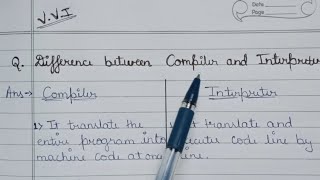 V.V.I
Date
Page
Q. Difference between Compiler and Interpreter
Ans→ Compiler Interpreter
1) It translate the translate and
entire program into code line by
machine code at once line.